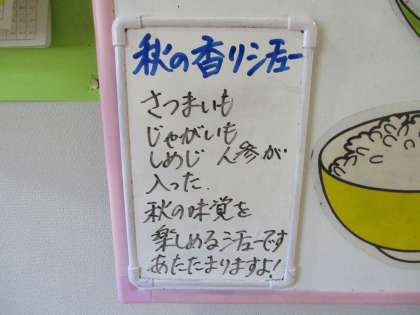 秋の香りシチュー
さつまいも
じゃがいも
しめじ 人参が
入った.
秋の味覚を
楽しめるシチューです
あたたまりますよ!